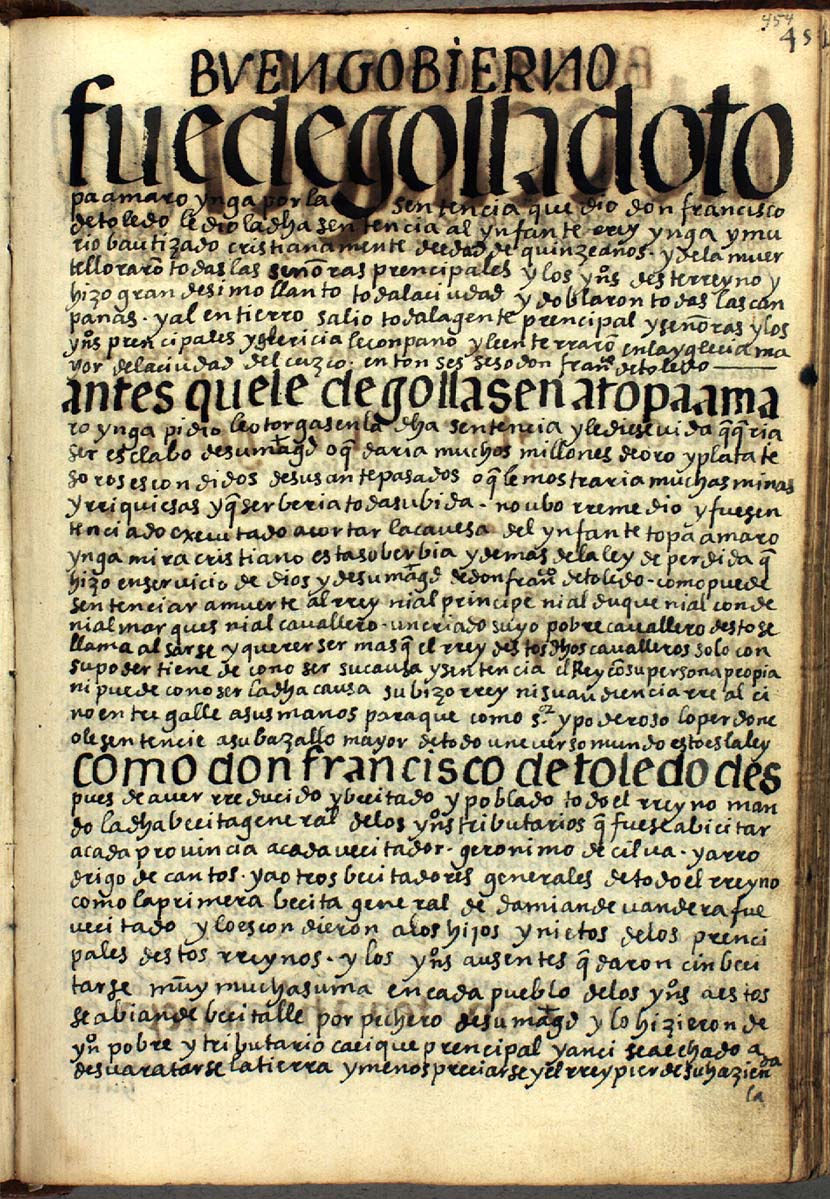 454
45
BVEN GOBiERNO
fue degollado to
pa amaro ynga por la sentencia que dio don francisco
de toledo le dio la dha sentencia al ynfante rrey ynga y mu
rio bautizado cristianamente de edad de quinze años · y de la muer
te lloraro todas las señoras prencipales y los ynos deste rreyno y
hizo grandesimo llanto toda la ciudad y doblaron todas las can
panas · y al entierro salio toda la gente prencipal y señoras y los
ynos prencipales y glericia le conpano y le enterraro en la yglecia ma
yor de la ciudad del cuzco · entonses seso don franco de toledo
antes que le degollasen a topa ama
ro ynga pidio le otorgasen la dha sentencia y le diese vida q queria
ser esclabo de su magd o q daria muchos millones de oro y plata te
soros escondidos de sus antepasados o q le mostraria muchas minas
y rriquiesas y q serberia toda su bida · no ubo rremedio y fue sen
tenciado executado a cortar la cavesa del ynfante topa amaro
ynga mira cristiano esta soberbia y demas de la ley de perdida q
hizo en servicio de dios y de su magd de don franco de toledo · como puede
sentenciar a muerte al rrey ni al principe ni al duque ni al conde
ni al marques ni al cavallero · un criado suyo pobre cavallero desto se
llama alsarse y querer ser mas q el rrey destos dhos cavalleros solo con
su poder tiene de cono ser su causa y sentencia el Rey co su persona propia
ni puede cono ser la dha causa su bizorrey ni su audiencia rreal ci
no entregalle a sus manos para que como sr y poderoso lo perdone
o le sentencie a su bazallo mayor de todo uneverso mundo esto es la ley
como don francisco de toledo des
pues de aver rreducido y becitado y poblado todo el rreyno man
do la dha becita general de los ynos tributarios q fuese a bicitar
a cada provincia a cada vecitador · geronimo de cilva · ya rro
drigo de cantos · y a otros becitadores generales de todo el rreyno
como la primera becita general de damian de vandera fue
vecitado y lo escondieron a los hijos y nietos de los prenci
pales destos rreynos · y los ynos ausentes q daron cin beci
tarse muy mucha suma en cada pueblo de los ynos a estos
se abian de becitalle por pechero de su magd y lo hizieron de
yno pobre y tributario cacique prencipal y anci se a echado a
desvaratarse la tierra y menospreciarse y el rrey pierde su hazienda
la